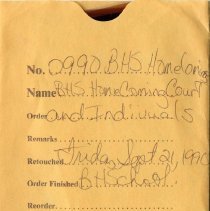 No. 0990 BHS Homecoming
Name BHS HomeComing Court
Order and Indiviuals
Remarks
Retouched Friday Sept 21, 1990
Order Finished BHSchool
Reorder